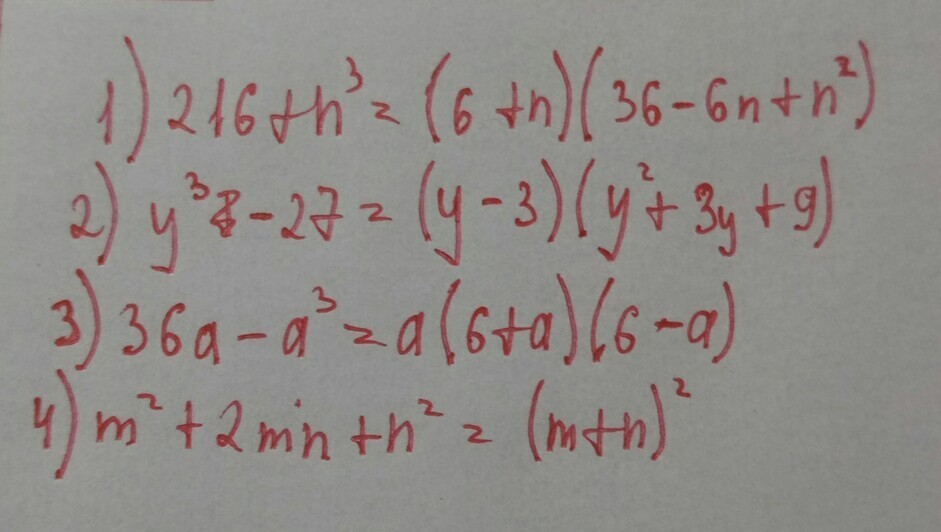 1) 216+n³=(6+n)(36-6n+n²)
2) y³-27=(y-3)(y²+3y+9)
3) 36a-a³=a(6+a)(6-a)
4) m²+2mn+n²=(m+n)²